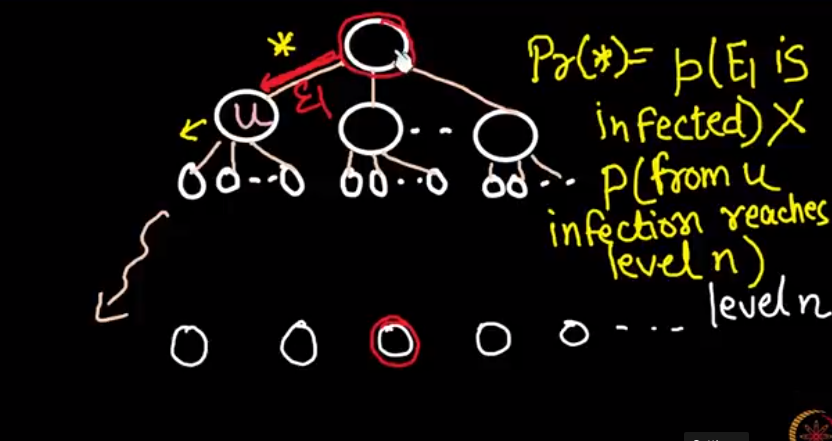 *
Pr(*)= p(E1 is
infected) X
p(from u
infection reaches
level n)
E1
u
level n